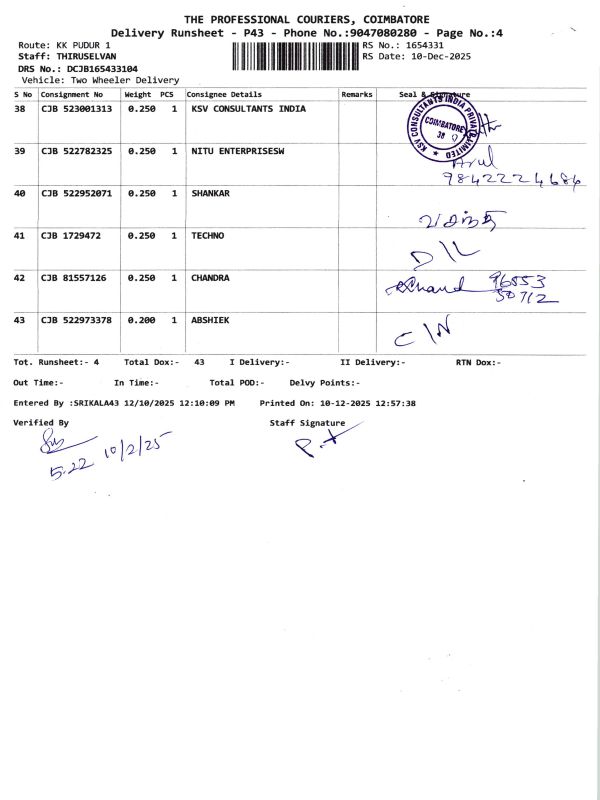 THE PROFESSIONAL COURIERS, COIMBATORE
Delivery Runsheet - P43 - Phone No.:9047080280 - Page No.:4
Route: KK PUDUR 1 RS No.: 1654331
Staff: THIRUSELVAN RS Date: 10-Dec-2025
DRS No.: DCJB165433104
Vehicle: Two Wheeler Delivery
S No Consignment No Weight PCS Consignee Details Remarks Seal & Signature
38 CJB 523001313 0.250 1 KSV CONSULTANTS INDIA
KSV CONSULTANTS INDIA PRIVATE LIMITED
COIMBATORE
38
39 CJB 522782325 0.250 1 NITU ENTERPRISESW
Arul
9842224686
40 CJB 522952071 0.250 1 SHANKAR
41 CJB 1729472 0.250 1 TECHNO
D \ L
42 CJB 81557126 0.250 1 CHANDRA
96553
50712
43 CJB 522973378 0.200 1 ABSHIEK
C \ N
Tot. Runsheet:- 4 Total Dox:- 43 I Delivery:- II Delivery:- RTN Dox:-
Out Time:- In Time:- Total POD:- Delvy Points:-
Entered By :SRIKALA43 12/10/2025 12:10:09 PM Printed On: 10-12-2025 12:57:38
Verified By Staff Signature
5.22 10/2/25
P.